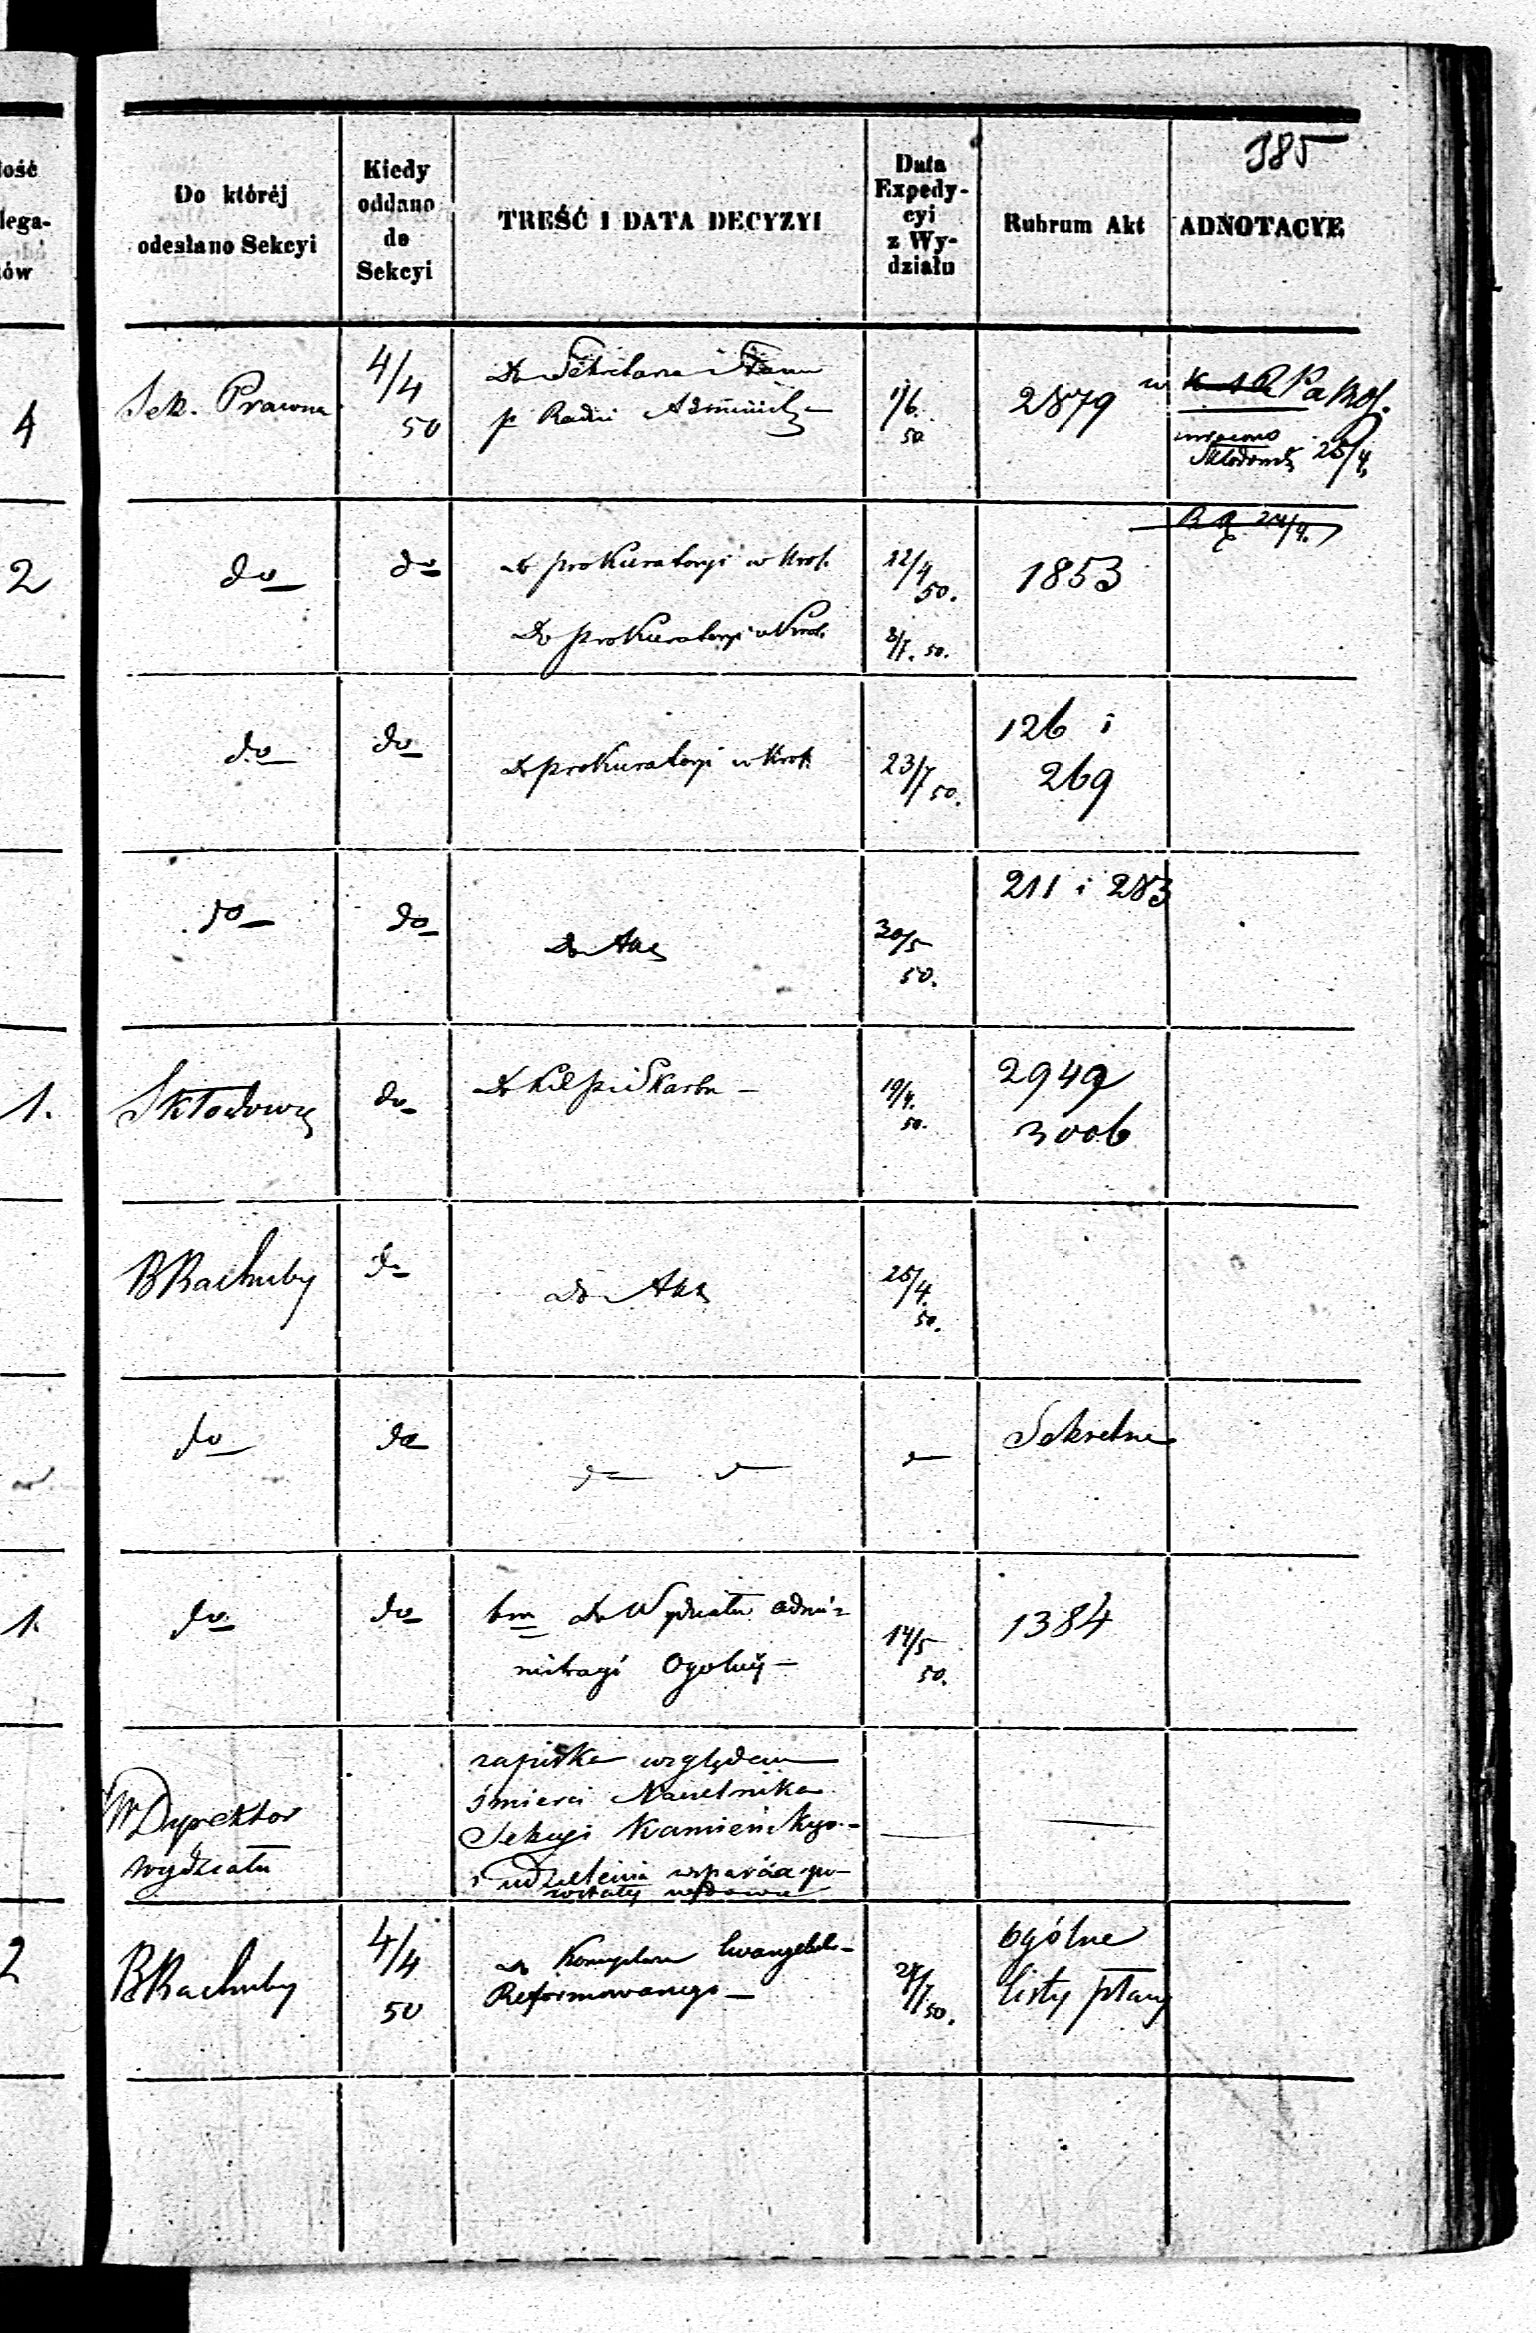 385
ość
lega-
ów
Do któréj
odesłano Sekcyi
Kiedy
oddano
do
Sekcyi
TREŚĆ I DATA DECYZYI
Data
Expedy-
cyi
z Wy-
działu
Rubrum Akt
ADNOTACYE
4
Sek. Prawna
4/4
50
Do Sekretarza Stanu
p Radzie Administ
1/6.
50
2879
25/4
2
do
do
do prokuratoryi w Krol.
22/4
50.
1853
Do prokuratoryi w Krol.
2/7. 50.
do
do
do prokuratoryi w Krol.
23/7 50.
126 i
269
do
do
Do Akt
30/5
50.
211 i 283
1.
Skłodowy
do
Skarbu
19/4.
50.
2949
3006
B Rachuby
do
Do Akt
25/4.
50.
do
do
Sekretne
1.
do
do
bm do Wydziału admi=
nistracyi Ogolnej
14/5
50.
1384
W Dyrektor
wydziału
zapiska względem
śmierci Naczelnika
Sekcyi Kamieńskego
i udzielenia wsparcia po-
wdowie
2
B Rachuby
4/4
50
Ewangelicko-
Reformowanego
/7 50.
ogólne
listy płacy